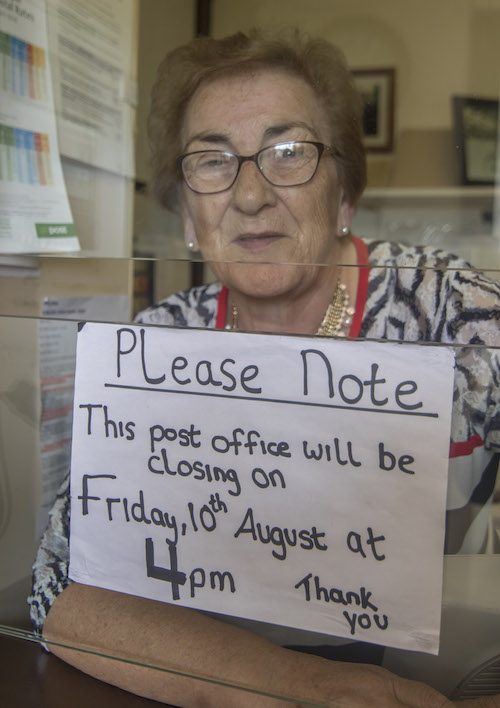 PLease Note
This post office will be
closing on
Friday, 10th August at
4pm Thank
you